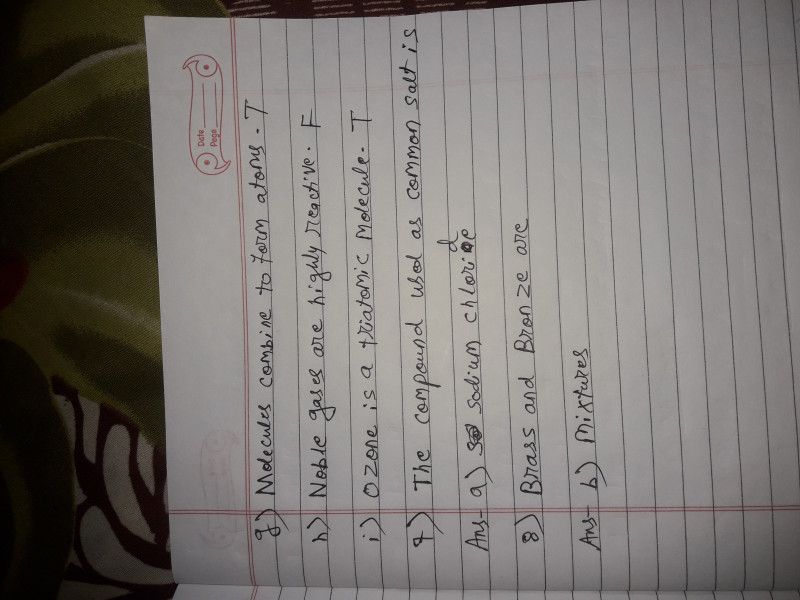 Date
Page
g) Molecules combine to form atoms. T
h) Noble gases are highly reactive. F
i) Ozone is a triatomic molecule. T
7) The compound used as common salt is
Ans- a) sodium chloride
8) Brass and Bronze are
Ans- b) Mixtures